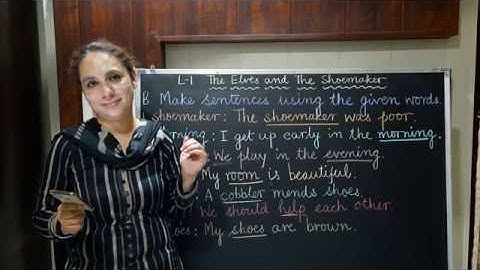 L-1 The Elves and The Shoemaker
B Make sentences using the given words.
shoemaker: The shoemaker was poor.
rning: I get up early in the morning.
We play in the evening.
My room is beautiful.
A cobbler mends shoes.
We should help each other.
oes: My shoes are brown.